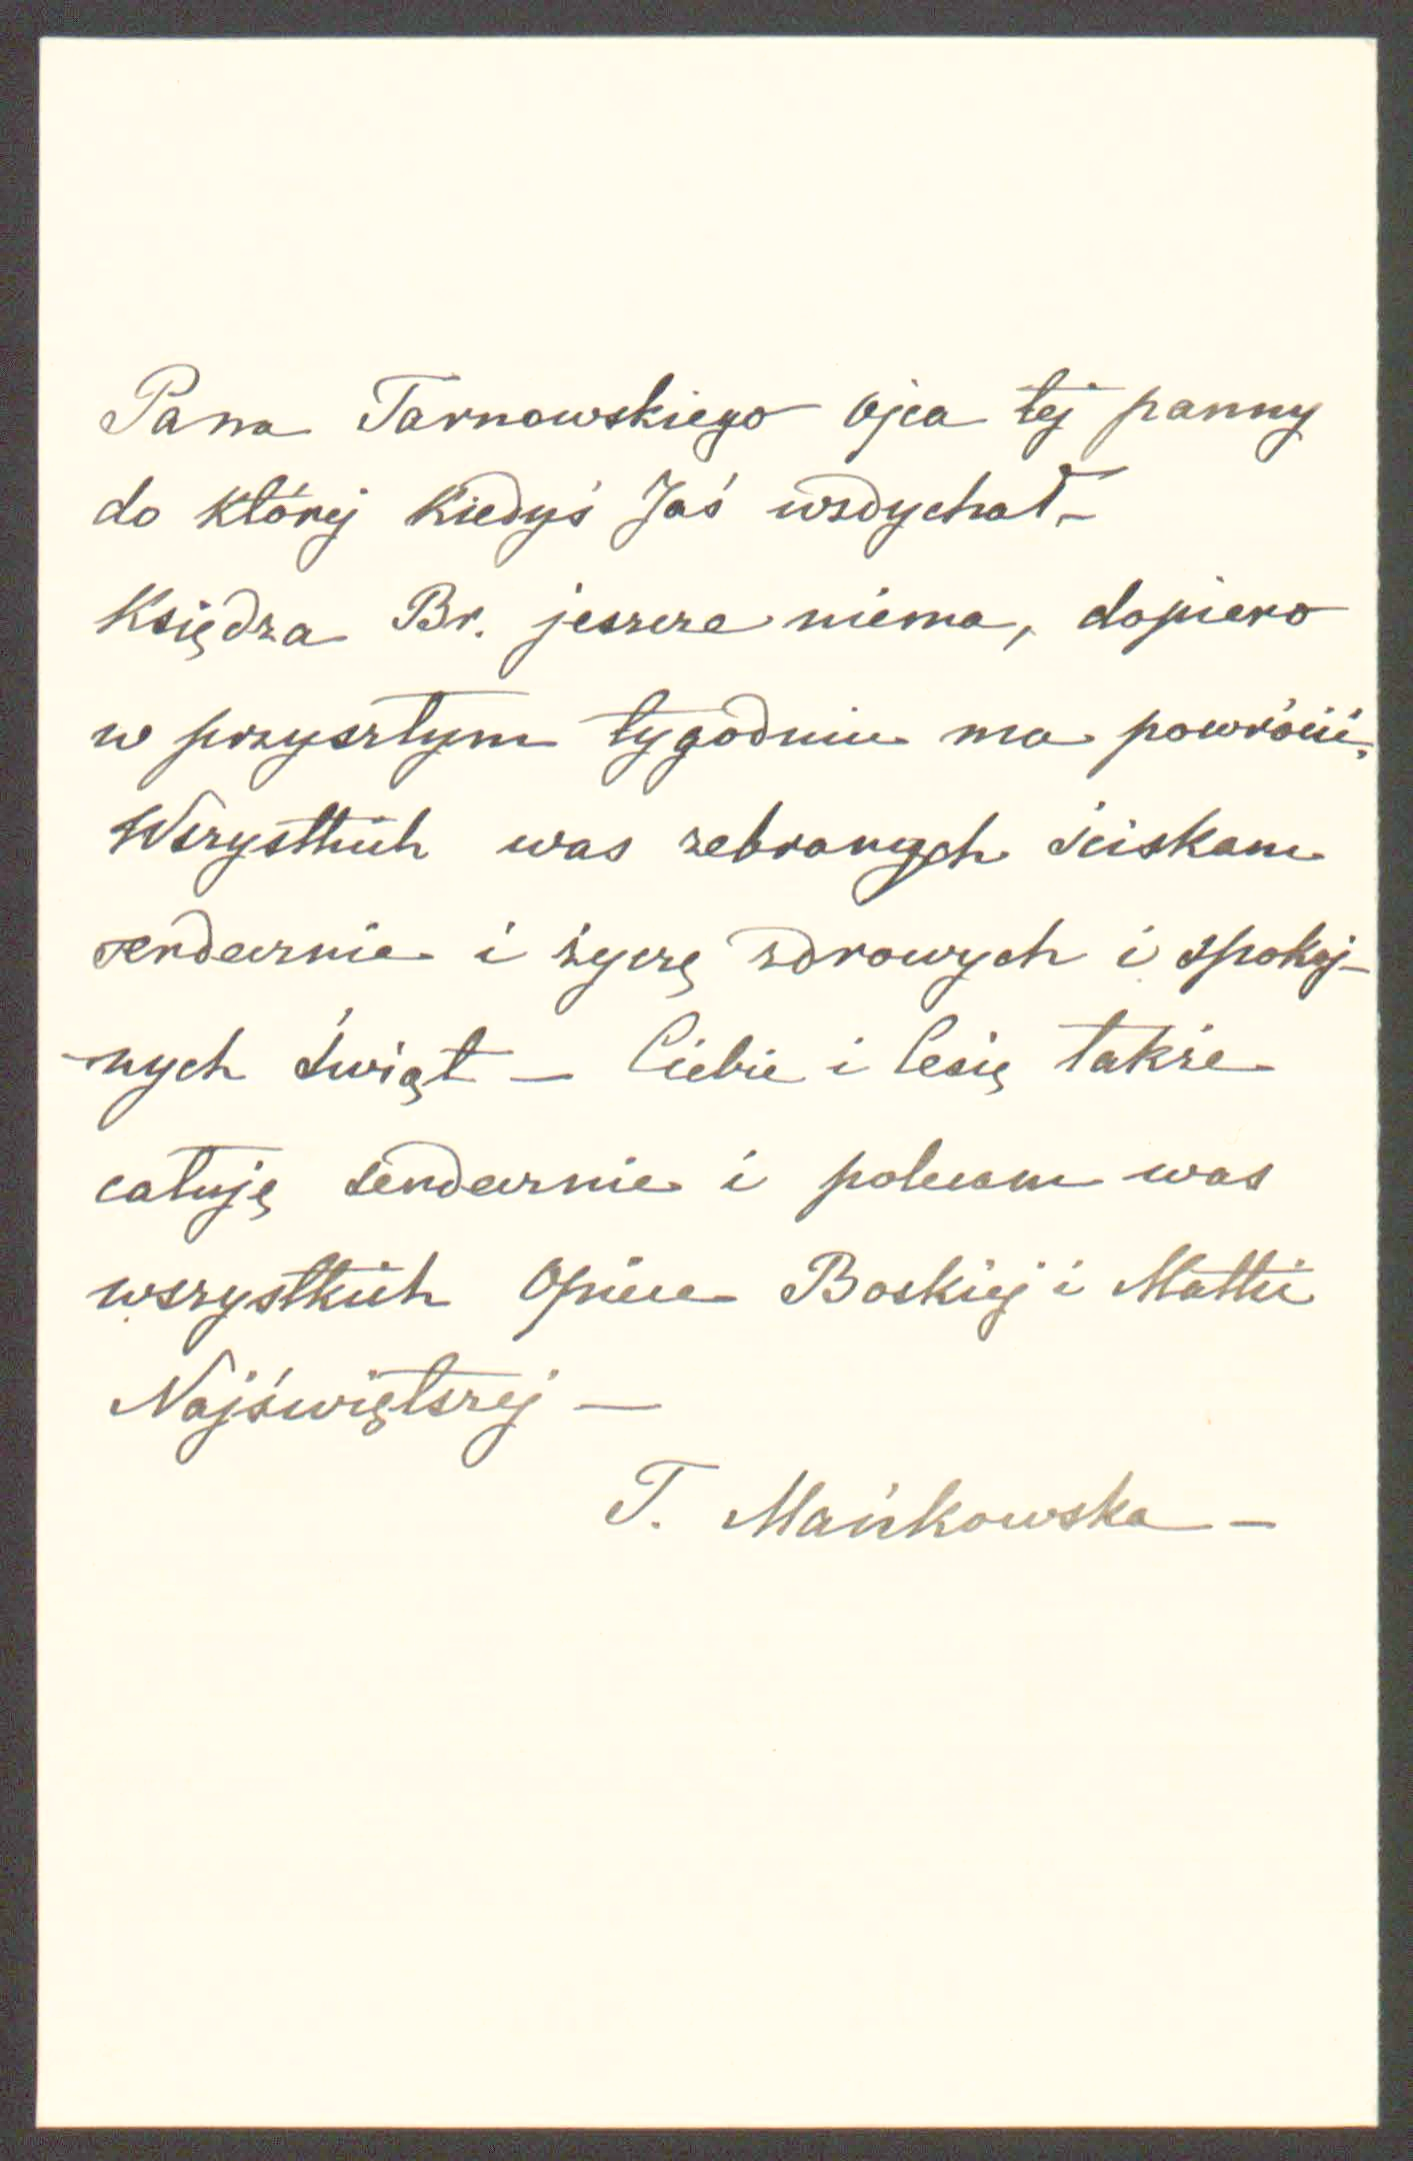 Pana Tarnowskiego ojca tej panny
do której kiedyś Jaś wzdychał –
Księdza Br. jeszcze niema, dopiero
w przyszłym tygodniu ma powrócić.
Wszystkich was zebranych ściskam
serdecznie i życzę zdrowych i spokoj-
-nych świąt – Ciebie i Cesię także
całuję serdecznie i polecam was
wszystkich Opiece Boskiej i Matki
Najświętszej –
T. Mańkowska –